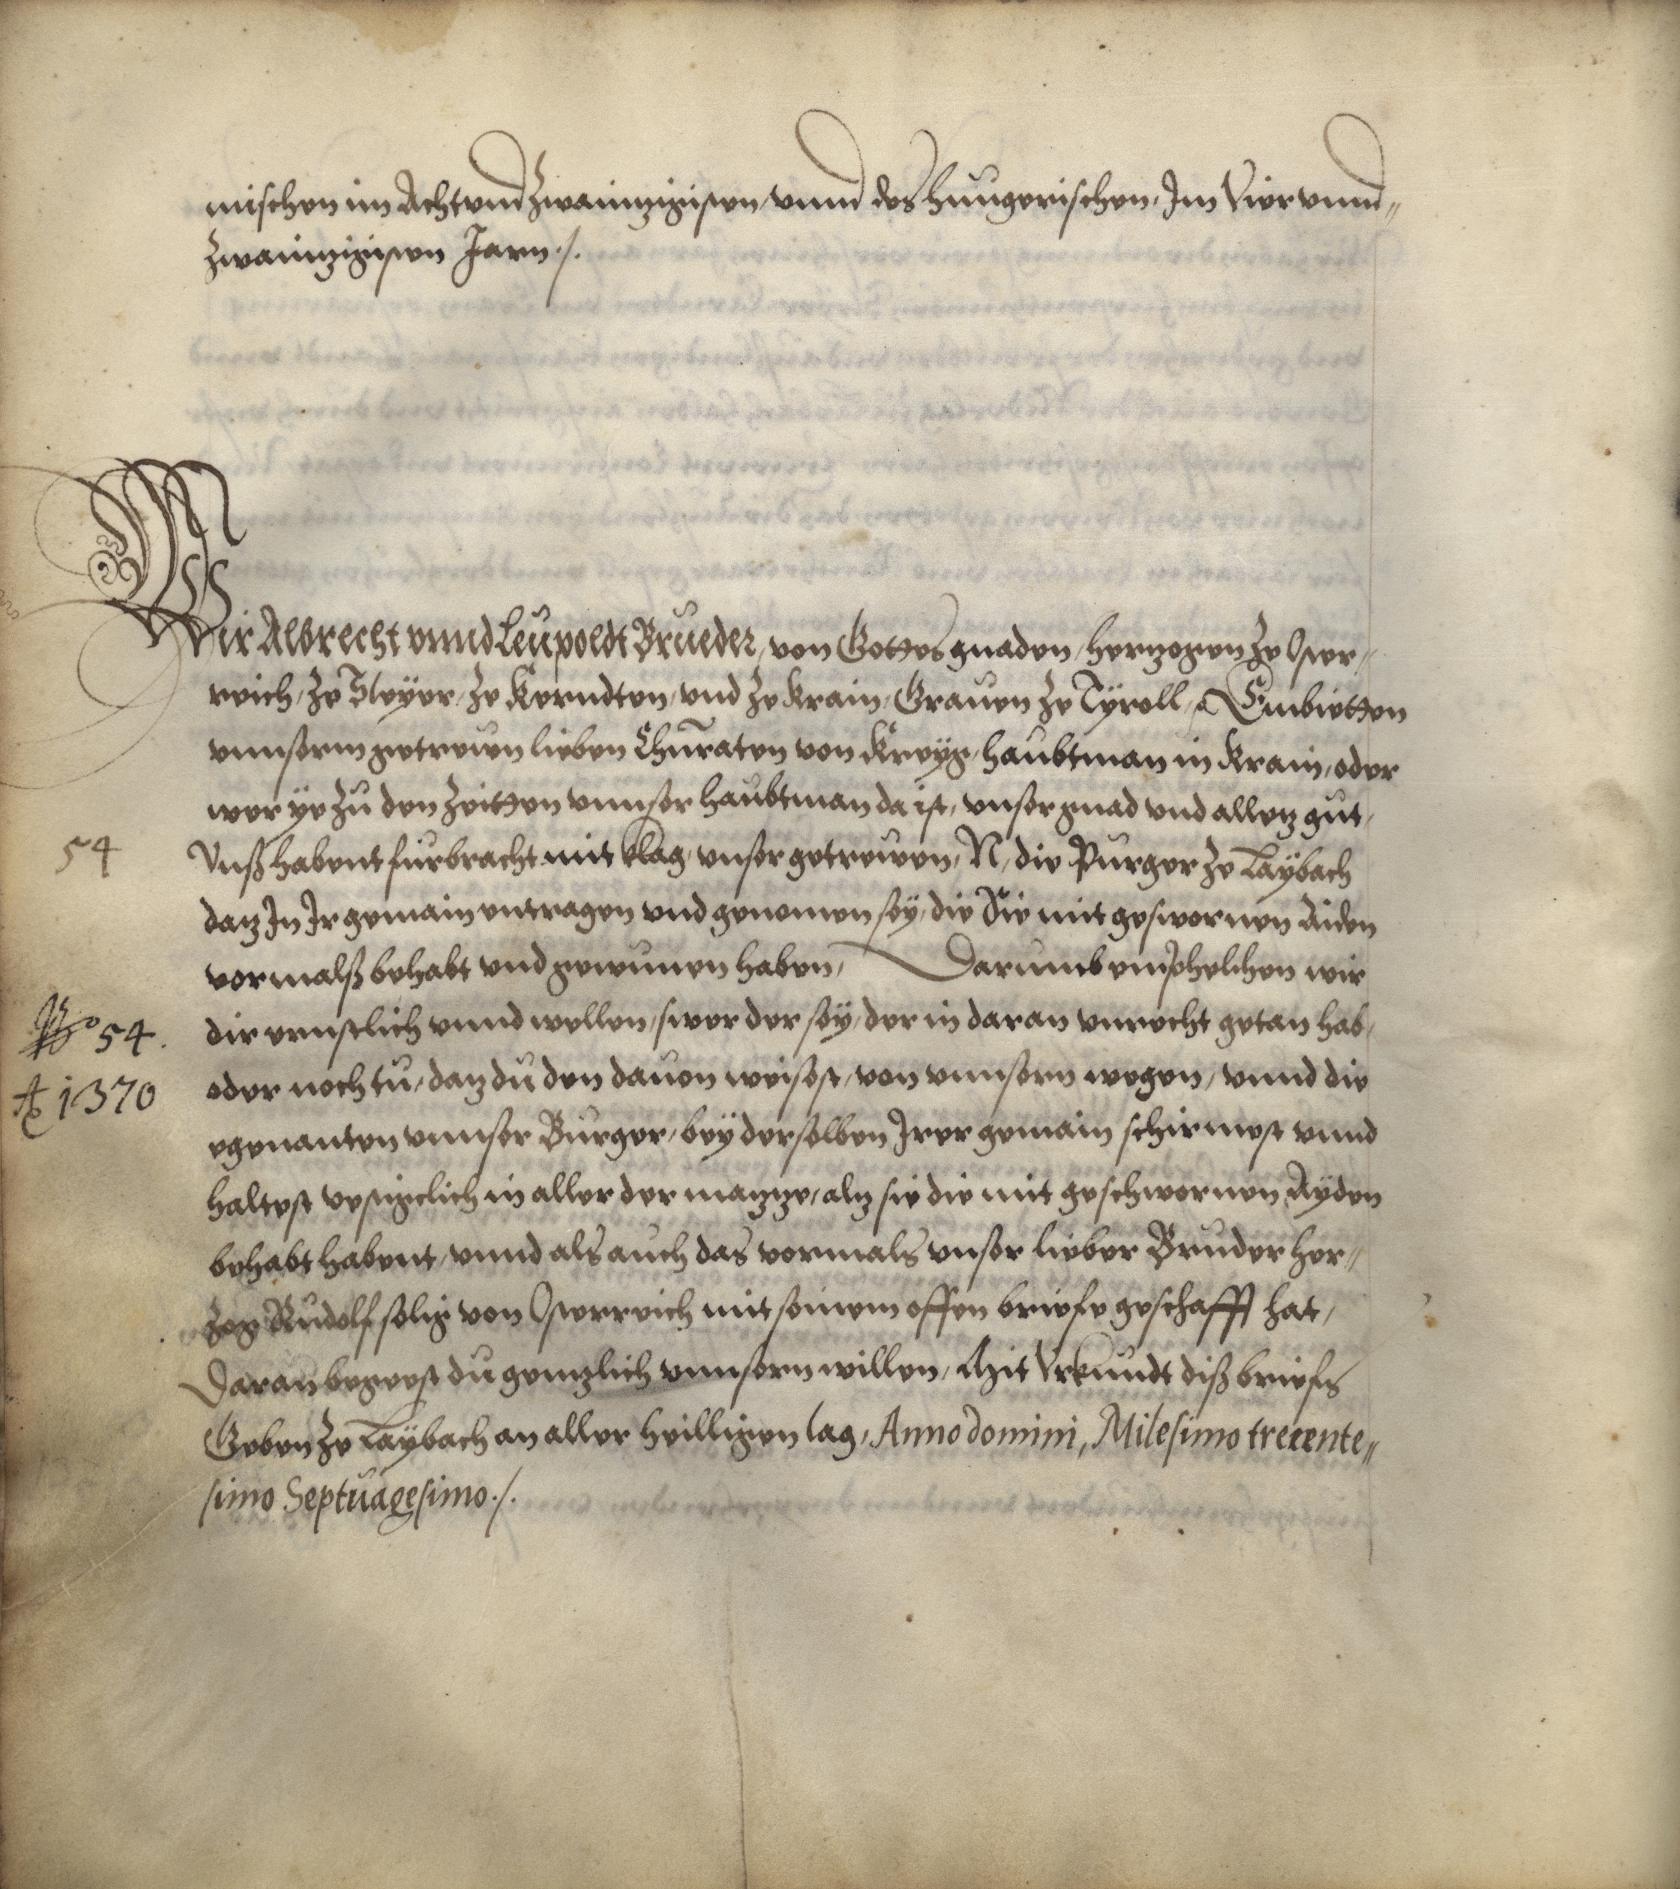 mischen im Achtvnd Zwaintzigisten, vnnd des Hungerischen, Im Vier vnnd„
Zwaintzigisten Jarn ./.
Wir Albrecht vnnd Leupoldt Brueder, von Gottes gnaden, Hertzogen Ze Oster„
reich, Ze Steyer, Ze Kerndten, vnd Ze Krain, Grauen Ze Tÿroll, Embietten
vnnserm getrewen lieben Churaten von Kreyg, haubtman in Krain, oder
wer ye Zu den Zeitten vnnser haubtman da ist, vnser gnad vnd alletz gut,
54
Vnß habent furbracht mit klag, vnser getrewen, N, die Purger Ze Laÿbach
datz In Ir gemain entragen vnd genomen seÿ, die Sie mit geswornen Aiden
vormalß behabt vnd gewunen haben, Darumb emphelchen wir
No 54.
dir ernstlich vnnd wellen, swer der seÿ, der in daran vnrecht getan hab,
A 1370
oder noch tu, datz du den dauon weisest, von vnnsern wegen, vnnd die
egenanten vnnser Burger, beÿ derselben Irer gemain schirmest vnnd
haltest vestigclich in aller der mazze, alz sie die mit geschwornen Aÿden
behabt habent, vnnd als auch das vormals vnser lieber Bruder Her„
zog Rudolf selig von Osterreich mit seinem offen briefe geschafft hat,
Daran begeest du gentzlich vnnsern willen, Mit Vrkundt diß briefs
Geben Ze Laÿbach an aller Heilligen tag, Anno domini, Milesimo trecente„
simo Septuagesimo ./.